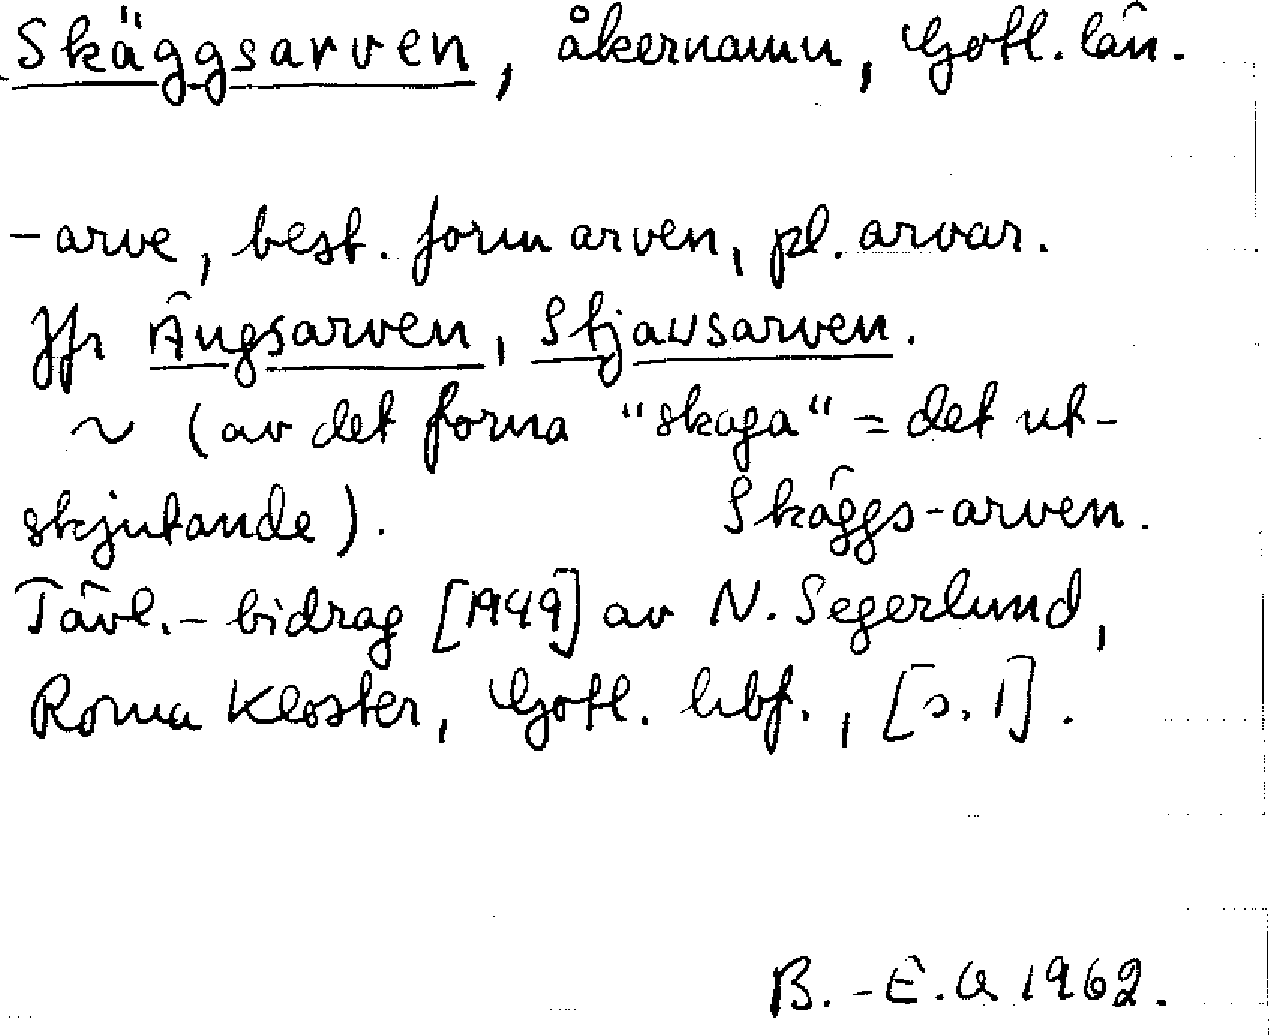 Skäggsarven, åkernamn, Gotl. län.
-arve, best. form arven, pl. arvar.
Jfr Ängsarven, Stjavsarven.
~ (av det forna "skaga" = det ut-
skjutande). Skäggs-arven.
Tävl.-bidrag [1949] av N. Segerlund,
Roma Kloster, Gotl. hbf., [s. 1].
B.-E. O 1962.